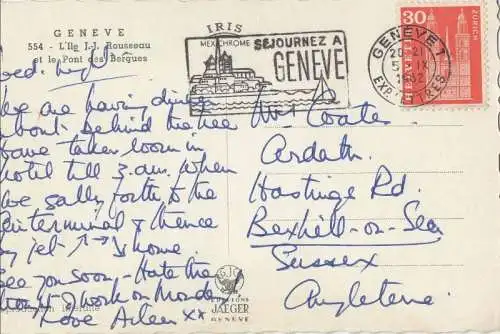 GENÈVE
554 - L'Ile J.-J. Rousseau
et le Pont des Bergues
IRIS
MEXICHROME
SÉJOURNEZ A
GENÈVE
GENÈVE 1
20-21
5. IX
1962
EXP. LETTRES
30
ZÜRICH
Wed. night
We are having dinner
about behind the
have taken room in
hotel till 3.am. when
we sally forth to the
Air terminal & thence
by jet ↗ → ↘ home.
See you soon - Hate the
thought of work on Monday
Love Aileen xx
Mrs Coates
Ardath
Hastings Rd.
Bexhill-on-Sea
Sussex
Angleterre.
SJG
EDITIONS
JAEGER
GENÈVE